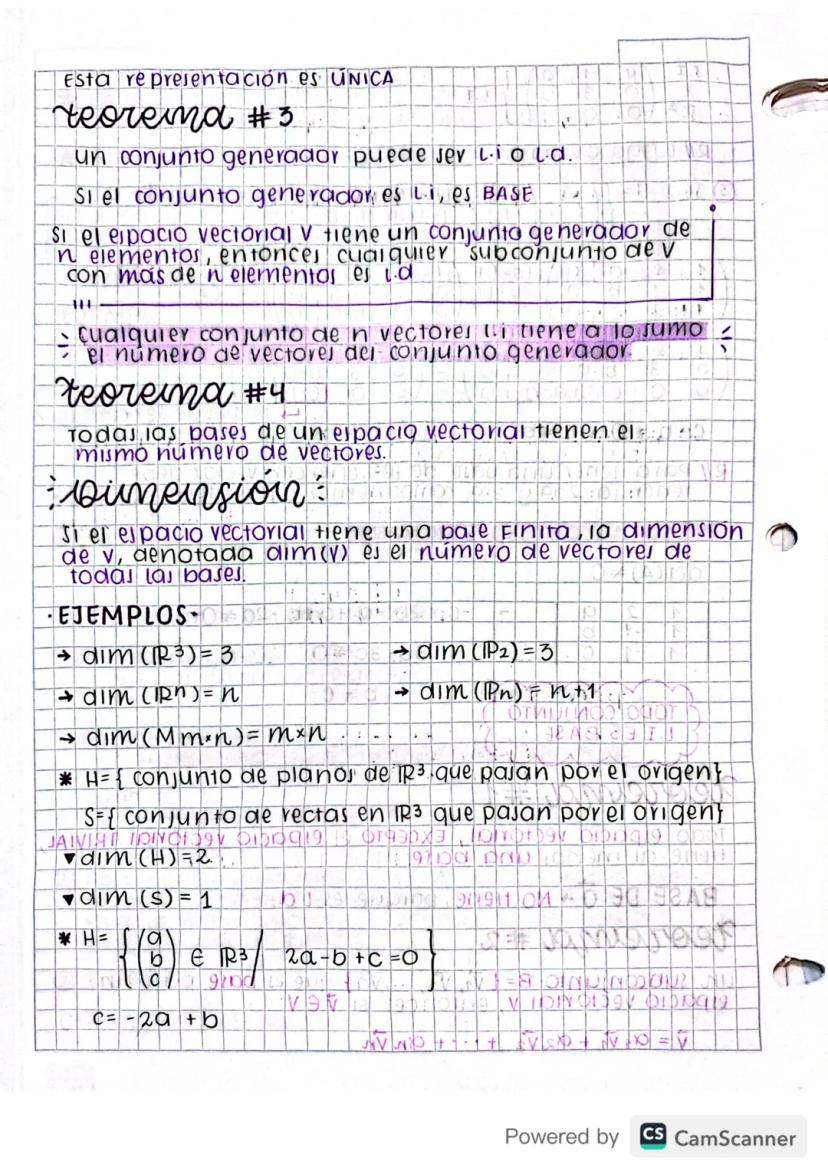 Esta representación es ÚNICA
teorema #3
un conjunto generador puede ser l.i o l.d.
Si el conjunto generador es l.i, es BASE
Si el espacio vectorial V tiene un conjunto generador de
n elementos, entonces cualquier subconjunto de V
con más de n elementos es l.d
cualquier conjunto de n vectores l.i tiene a lo sumo
el número de vectores del conjunto generador.
teorema #4
Todas las bases de un espacio vectorial tienen el
mismo número de vectores.
Dimensión
Si el espacio vectorial tiene una base Finita, la dimensión
de v, denotada dim(V) es el número de vectores de
todas las bases.
·EJEMPLOS·
→ dim (ℝ³) = 3 → dim (ℙ₂) = 3
→ dim (ℝn) = n → dim (ℙn) = n+1
→ dim (Mm×n) = m×n
* H={ conjunto de planos de ℝ³ que pasan por el origen}
S={ conjunto de rectas en ℝ³ que pasan por el origen}
▾ dim (H) = 2
▾ dim (S) = 1
* H= { (a b c) ∈ ℝ³ / 2a - b + c = 0 }
c = -2a + b
Powered by CS CamScanner